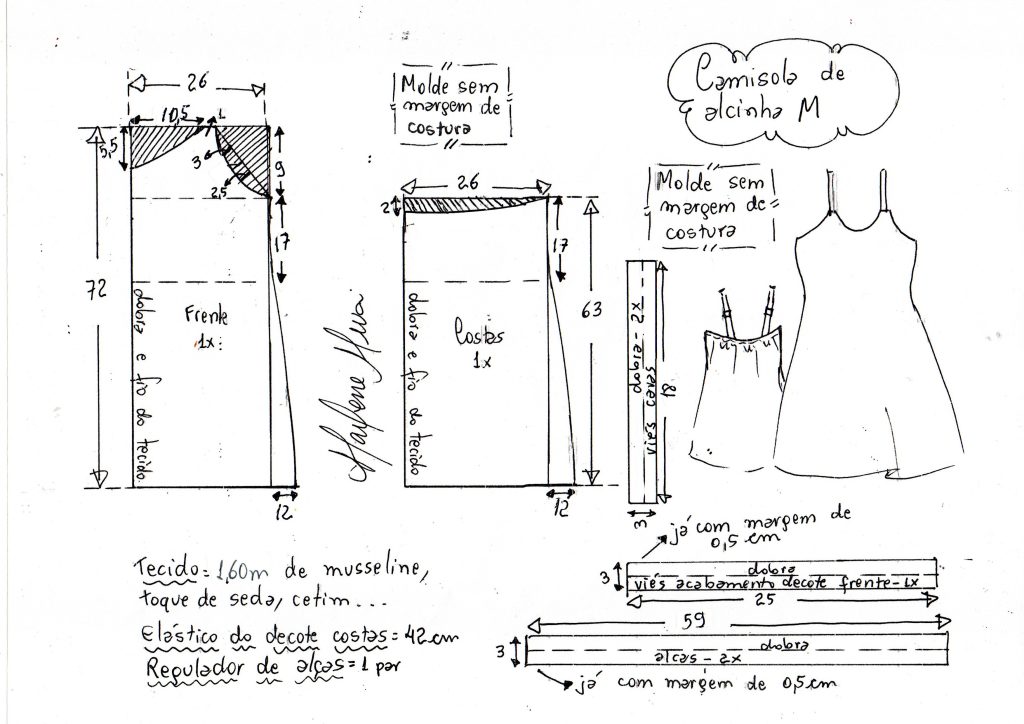 Camisola de
alcinha M
26
Molde sem
margem de
costura
10,5
1
5,5
3
2,5
9
17
72
Frente
1x
dobra e fio do tecido
12
26
2
17
63
Costas
1x
dobra e fio do tecido
12
Marlene
Molde sem
margem de
costura
dobra - 2x
viés cavas
18
3
já com margem de
0,5 cm
3
dobra
viés acabamento decote frente - 1x
25
59
3
dobra
alças - 2x
já com margem de 0,5 cm
Tecido = 1,60m de musseline,
toque de seda, cetim...
Elástico do decote costas = 42 cm
Regulador de alças = 1 par